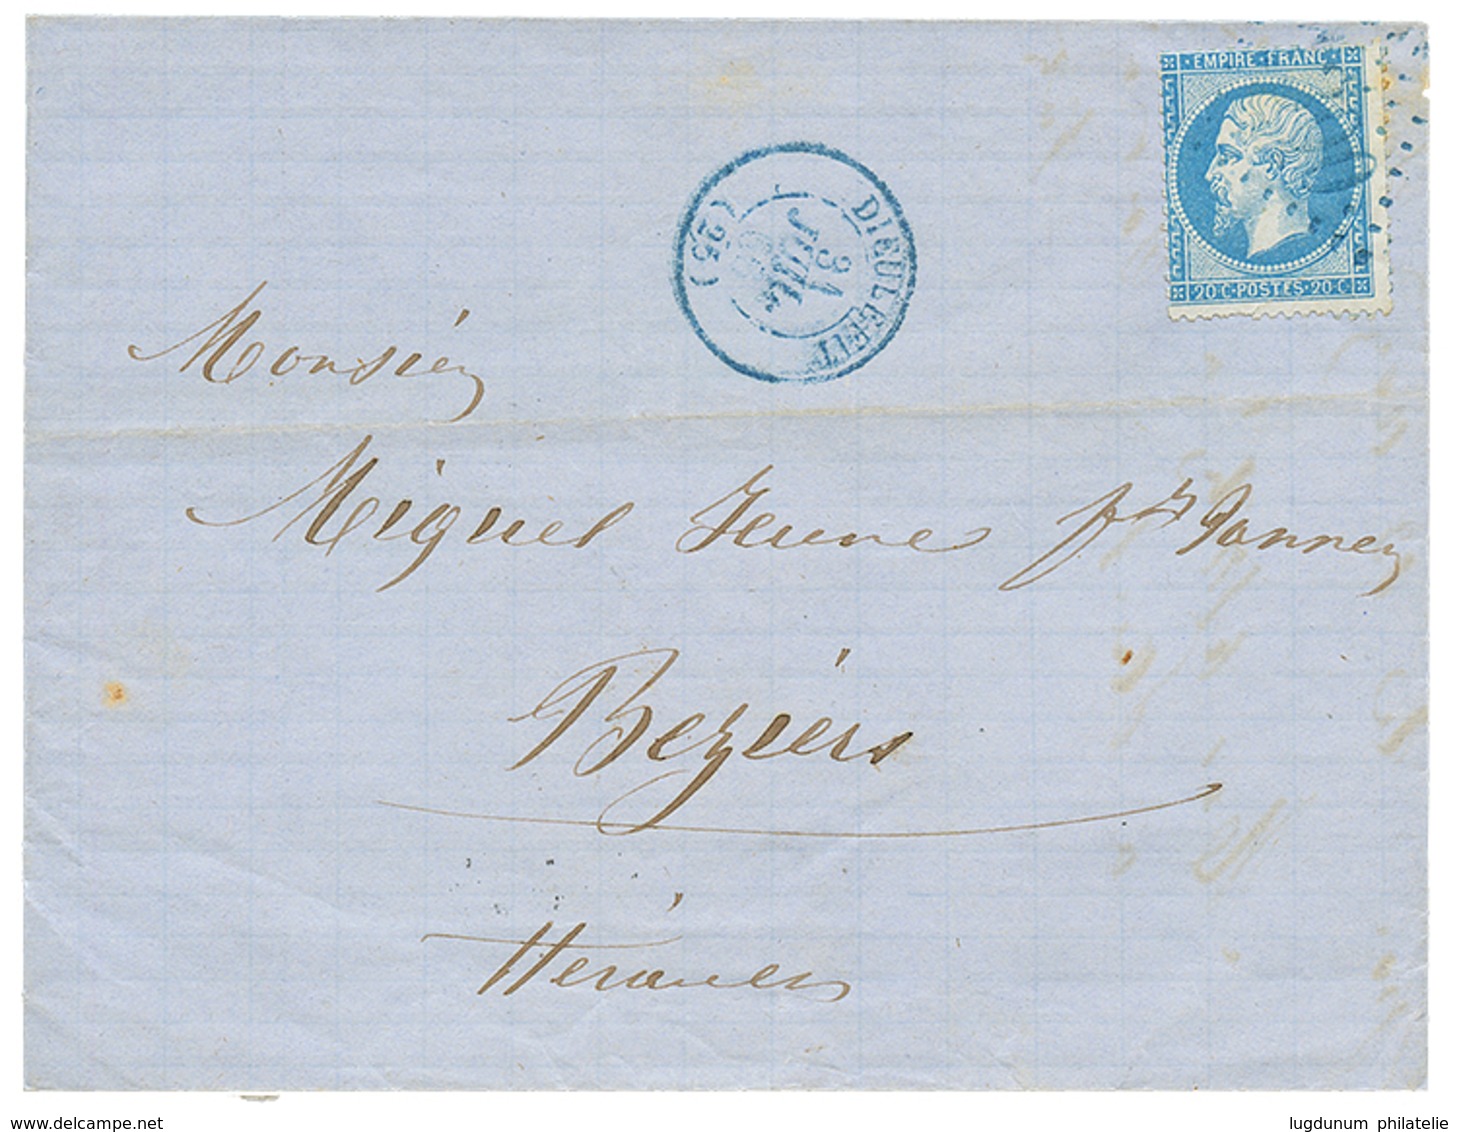 EMPIRE FRANC
20 C POSTES 20 C
DIEULEFIT
31
JUIL
(25)
Monsieu
Miguel Jeune
Beziers
www.delcampe.net
lugdunum philatelie